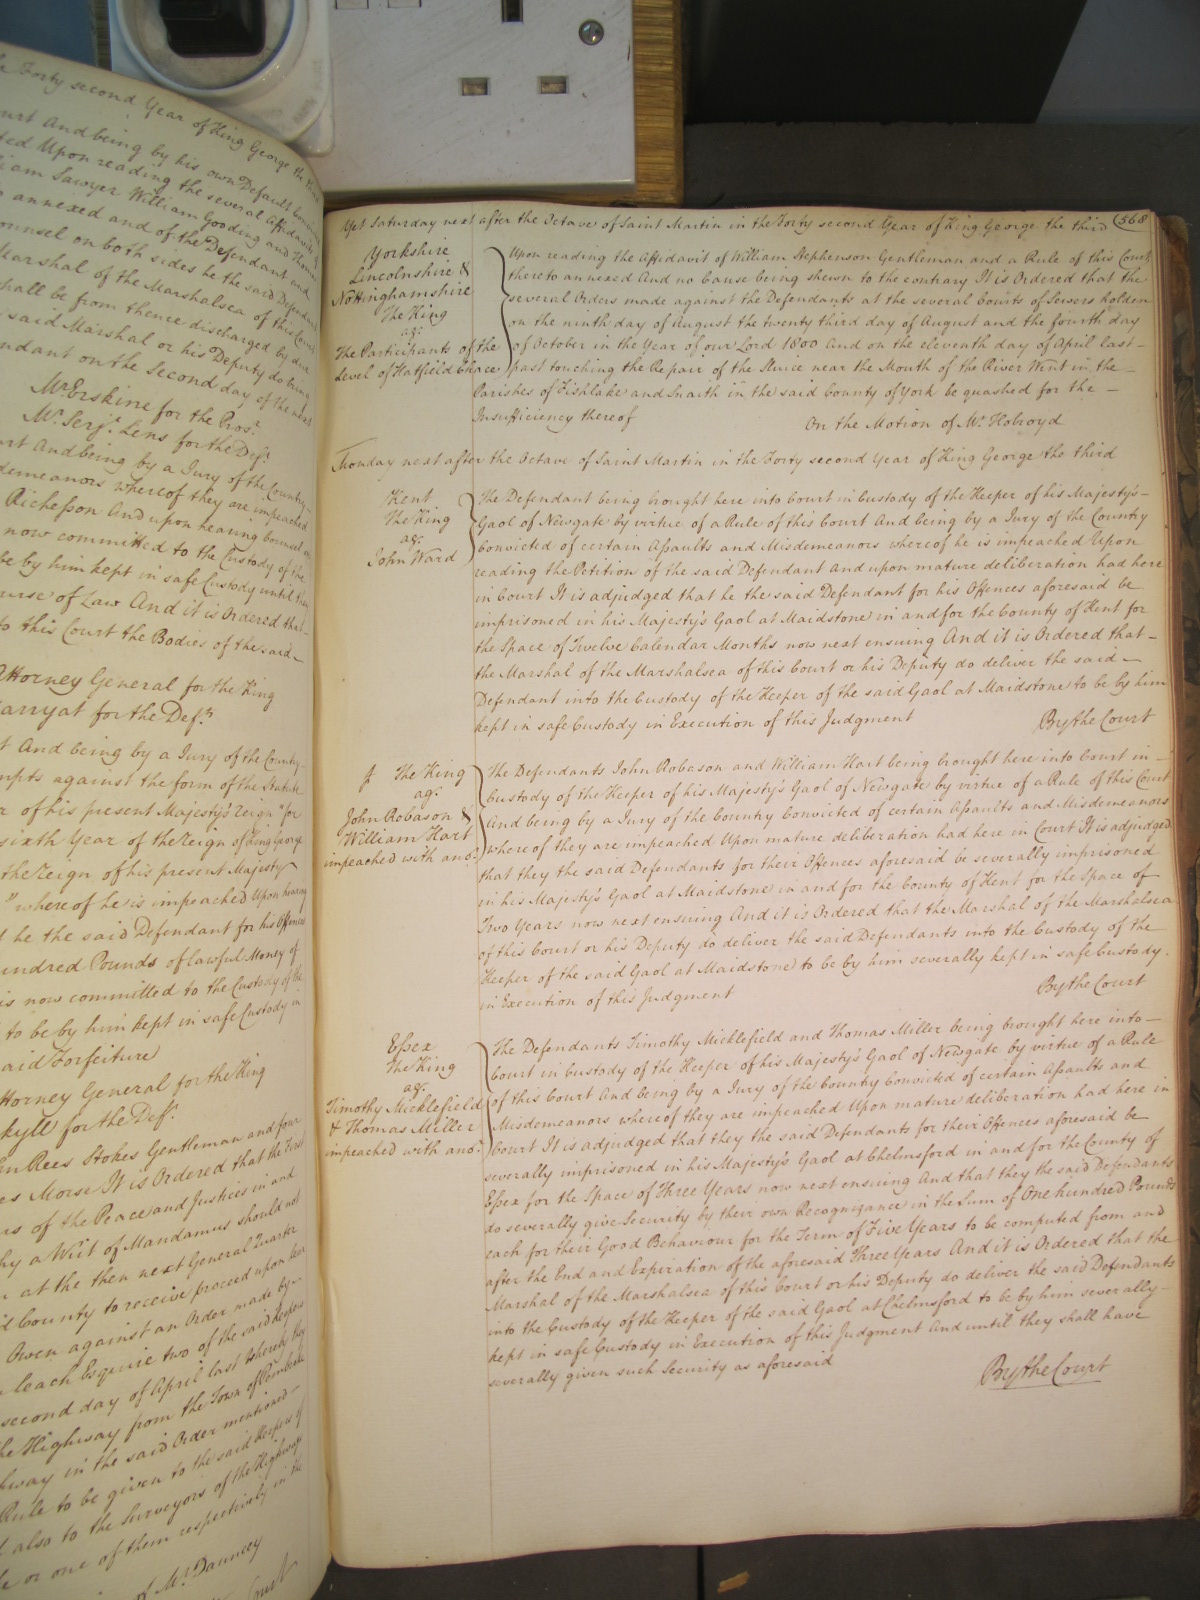 Forty second Year of King George the third
And being by his own Default
Upon reading the several Affidavits
William Sawyer William Gooding and Thomas
annexed and of the Defendant and
Counsel on both sides he the said Defendant
Marshal of the Marshalsea of this Court
shall be from thence discharged by due
said Marshal or his Deputy do bring
on the Second day of the next
Mr. Erskine for the Prosr.
Mr. Serjt. Lens for the Deft.
And being by a Jury of the Country
whereof they are impeached
Richesson And upon hearing Counsel
now committed to the Custody of the
be by him kept in safe Custody until
of Law And it is Ordered that
to this Court the Bodies of the said
Attorney General for the King
for the Defts.
And being by a Jury of the Country
against the form of the Statute
of his present Majesty's reign "for
sixth Year of the reign of King George
the reign of his present Majesty
" whereof he is impeached Upon hearing
he the said Defendant for his Offences
Hundred Pounds of lawful Money of
is now committed to the Custody of the
to be by him kept in safe Custody in
said Forfeiture
Attorney General for the King
for the Deft.
Rees Stokes Gentleman and four
Morse It is Ordered that the first
of the Peace and Justices in and
why a Writ of Mandamus should not
at the then next General Quarter
County to receive proceed upon
Owen against an Order made by
Leach Esquire two of the said Keepers
second day of April last whereby they
the Highway from the Town of Pembroke
in the said Order mentioned
Rule to be given to the said Keepers of
also to the Surveyors of the Highways
or one of them respectively in the
of Mr. Dauncey
Court
Yet Saturday next after the Octave of Saint Martin in the Forty second Year of King George the third 568
Yorkshire
Lincolnshire &
Nottinghamshire
The King
agt.
The Participants of the
Level of Hatfield Chace
Upon reading the Affidavit of William Stephenson Gentleman and a Rule of this Court
thereto annexed And no Cause being shewn to the contrary It is Ordered that the
several Orders made against the Defendants at the several Courts of Sewers holden
on the ninth day of August the twenty third day of August and the fourth day
of October in the Year of our Lord 1800 And on the eleventh day of April last
past touching the Repair of the Sluice near the Mouth of the River in the
Parishes of Fishlake and Snaith in the said County of York be quashed for the
Insufficiency thereof
On the Motion of Mr. Holroyd
Monday next after the Octave of Saint Martin in the Forty second Year of King George the third
Kent
The King
agt.
John Ward
The Defendant being brought here into Court in Custody of the Keeper of his Majesty's
Gaol of Newgate by virtue of a Rule of this Court And being by a Jury of the Country
Convicted of certain Assaults and Misdemeanors whereof he is impeached Upon
reading the Petition of the said Defendant and upon mature deliberation had here
in Court It is adjudged that he the said Defendant for his Offences aforesaid be
imprisoned in his Majesty's Gaol at Maidstone in and for the County of Kent for
the Space of Twelve Calendar Months now next ensuing And it is Ordered that
the Marshal of the Marshalsea of this Court or his Deputy do deliver the said
Defendant into the Custody of the Keeper of the said Gaol at Maidstone to be by him
kept in safe Custody in Execution of this Judgment
By the Court
The King
agt.
John Robason &
William Hart
impeached with anor.
The Defendants John Robason and William Hart being brought here into Court in
Custody of the Keeper of his Majesty's Gaol of Newgate by virtue of a Rule of this Court
And being by a Jury of the Country Convicted of certain Assaults and Misdemeanors
whereof they are impeached Upon mature deliberation had here in Court It is adjudged
that they the said Defendants for their Offences aforesaid be severally imprisoned
in his Majesty's Gaol at Maidstone in and for the County of Kent for the Space of
Two Years now next ensuing And it is Ordered that the Marshal of the Marshalsea
of this Court or his Deputy do deliver the said Defendants into the Custody of the
Keeper of the said Gaol at Maidstone to be by him severally kept in safe Custody
in Execution of this Judgment
By the Court
Essex
The King
agt.
Timothy Micklefield
& Thomas Miller
impeached with anor.
The Defendants Timothy Micklefield and Thomas Miller being brought here into
Court in Custody of the Keeper of his Majesty's Gaol of Newgate by virtue of a Rule
of this Court And being by a Jury of the Country Convicted of certain Assaults and
Misdemeanors whereof they are impeached Upon mature deliberation had here in
Court It is adjudged that they the said Defendants for their Offences aforesaid be
severally imprisoned in his Majesty's Gaol at Chelmsford in and for the County of
Essex for the Space of Three Years now next ensuing And that they the said Defendants
do severally give Security by their own Recognizance in the Sum of One hundred Pounds
each for their Good Behaviour for the Term of Five Years to be computed from and
after the End and Expiration of the aforesaid Three Years And it is Ordered that the
Marshal of the Marshalsea of this Court or his Deputy do deliver the said Defendants
into the Custody of the Keeper of the said Gaol at Chelmsford to be by him severally
kept in safe Custody in Execution of this Judgment And until they shall have
severally given such Security as aforesaid
By the Court